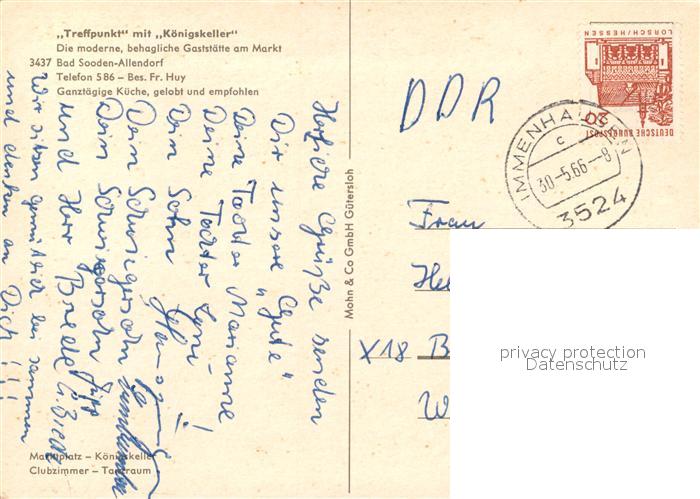 „Treffpunkt" mit „Königskeller"
Die moderne, behagliche Gaststätte am Markt
3437 Bad Sooden-Allendorf
Telefon 586 – Bes. Fr. Huy
Ganztägige Küche, gelobt und empfohlen
Herzliche Grüße senden
Dir unsere Gute
Deine Tochter Marianne
Deine Tochter Leni
Dein Sohn
Dein Schwiegersohn
Dein Schwiegersohn
und Herr
Wir sitzen gemütlich beisammen
und denken an Dich!!!
Marktplatz – Königskeller
Clubzimmer – Tanzraum
Mohn & Co GmbH Gütersloh
DDR
LORSCH/HESSEN
DEUTSCHE BUNDESPOST
20
IMMENHAUSEN
c
30-5.66-8
3524
Frau
He
X18 B
W
privacy protection
Datenschutz